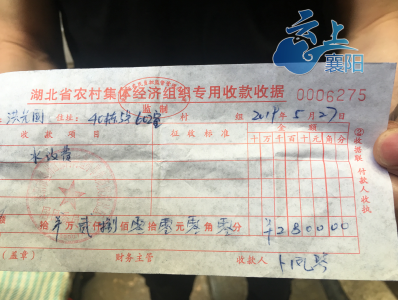 云上
襄阳
湖北省农村集体经济组织专用收款收据 0006275
监制
住址: 村 组 2019年5月27日
收款项目 征收标准 金额
千 百 十 万 千 百 十 元 角 分
水改费
②收据联 付款人收执
拾 万 贰仟 捌佰 零拾 零元 零角 零分 ¥280000
(盖章) 财务主管 收款人